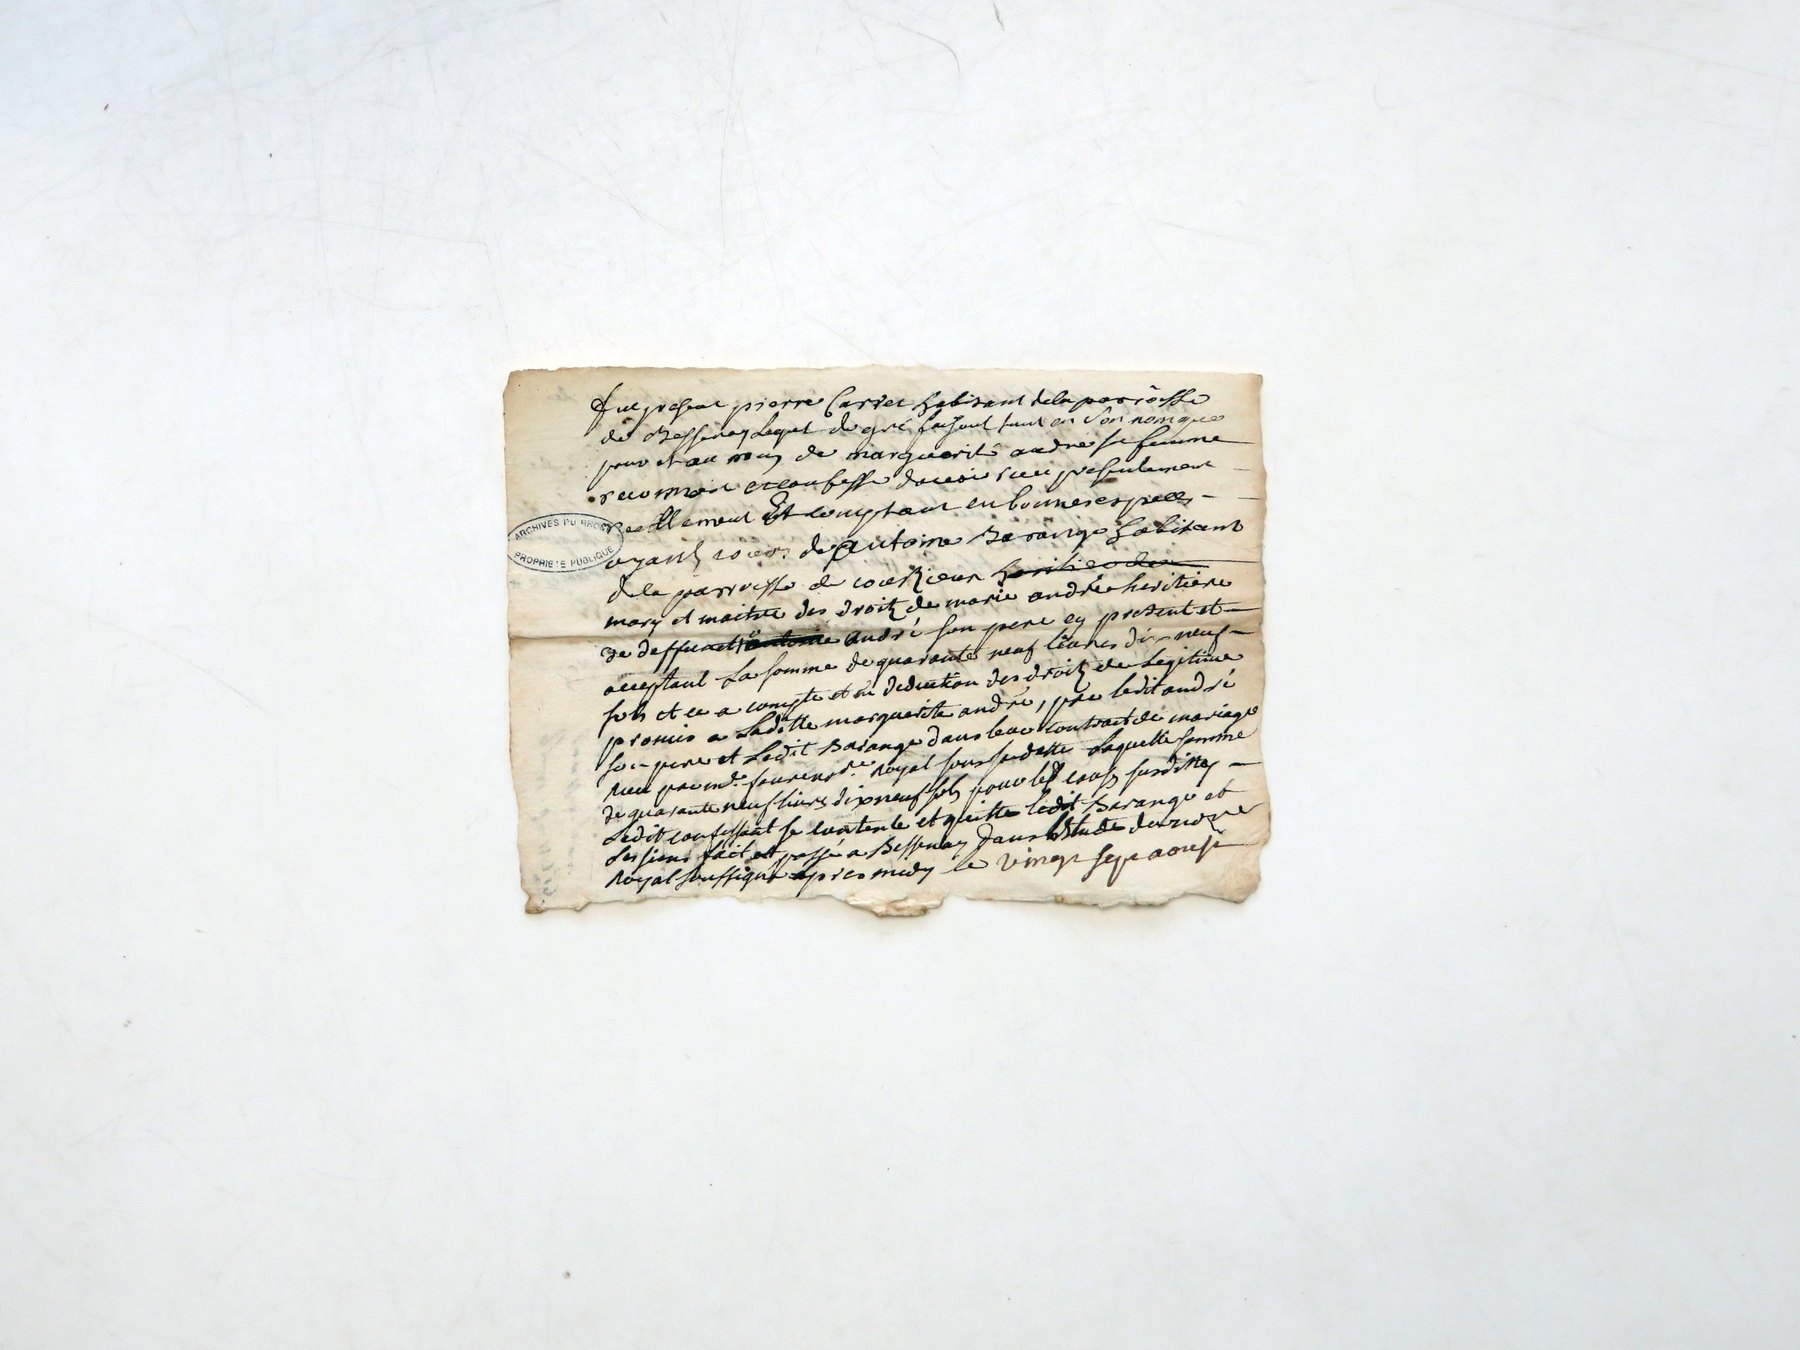 fut present pierre Carret habitant de la parroisse
de Bessenay Lequel de gré faisant tant en son nom que
pour et au nom de marguerite andré sa femme
reconnoit et confesse davoir receu presentement
reellement Et comptant en bonnes especes
ayant cours de antoine Barange habitant
de la parroisse de courzieux heritier de
mary et maitre des droitz de marie andrée heritière
de deffunct antoine andré son pere cy present et
acceptant La somme de quarante neuf livres dix neuf
sols et ce a compte et en deduction des droitz de Legitime
promis a Laditte marguerite andré, par ledit andré
son pere et Ledit Barange dans leur contract de mariage
receu par me. nre. Royal sous sa datte Laquelle somme
de quarante neuf livres dix neuf sols pour les causes susdittes
Ledit confessant se contente et quitte ledit Barange et
les siens fait et passé a Bessenay dans létude du nore
Royal soussigné apres midy le vingt sept aoust
ARCHIVES DU RHONE
PROPRIETE PUBLIQUE